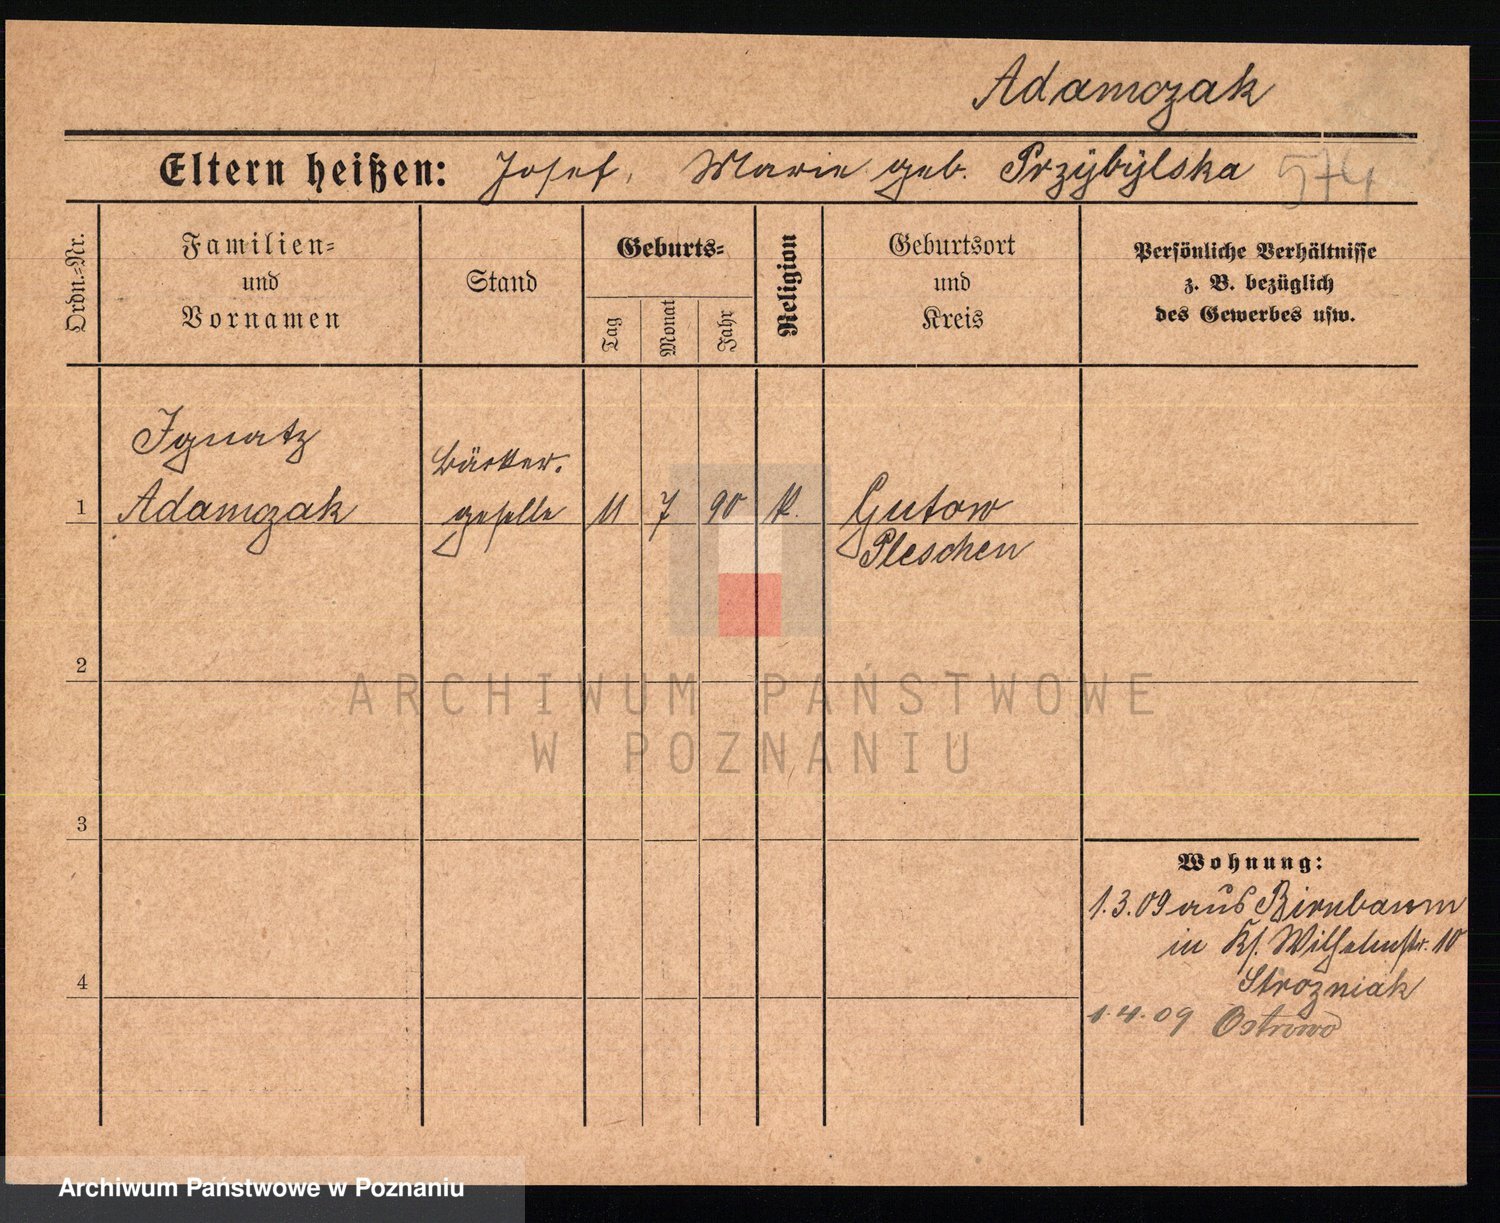 Adamczak
Eltern heißen: Josef, Marie geb. Przybylska 574
Ordn.-Nr.
Familien-
und
Vornamen
Stand
Geburts-
Tag
Monat
Jahr
Religion
Geburtsort
und
Kreis
Persönliche Verhältnisse
z. B. bezüglich
des Gewerbes usw.
Ignatz
1 Adamczak
Bäcker-
geselle
11 7 90 k.
Gutow
Pleschen
2
3
4
Wohnung:
1.3.09 aus Birnbaum
in Kf. Wilhelmstr. 10
Strozniak
1.4.09 Ostrowo
ARCHIWUM PAŃSTWOWE
W POZNANIU
Archiwum Państwowe w Poznaniu